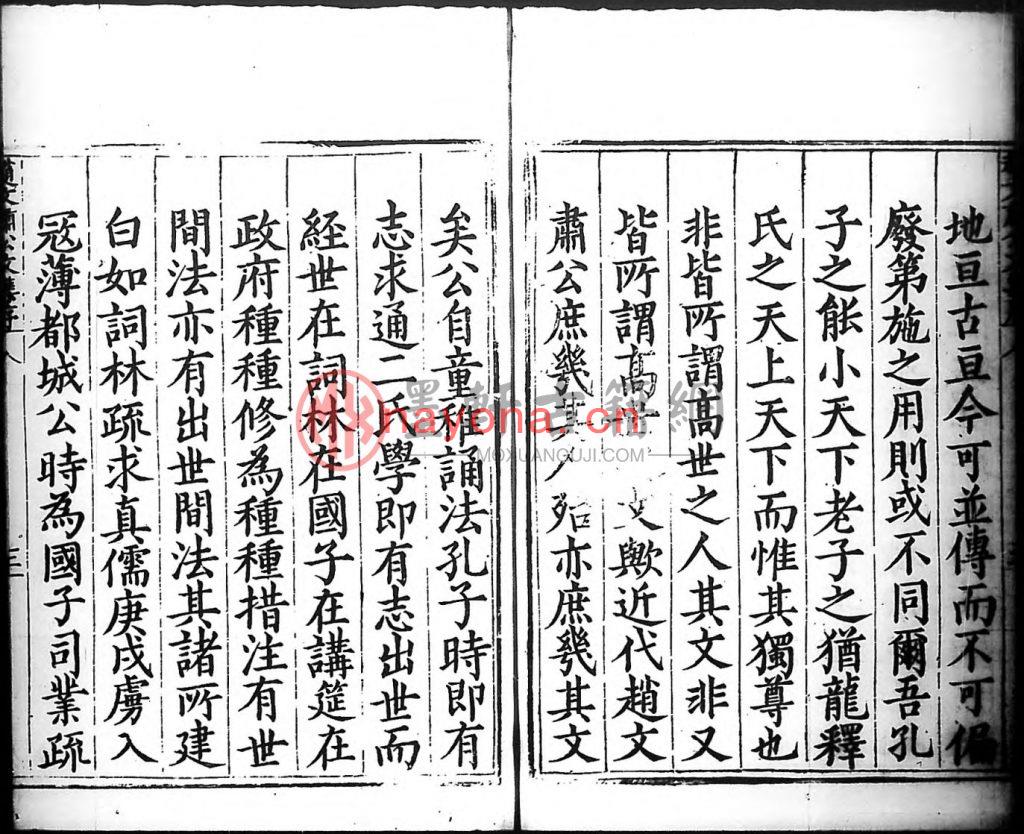 地亘古亘今可並傳而不可偏
廢第施之用則或不同爾吾孔
子之能小天下老子之猶龍釋
氏之天上天下而惟其獨尊也
非皆所謂高世之人其文非又
皆所謂高世文歟近代趙文
肅公庶幾其人殆亦庶幾其文
矣公自童稚誦法孔子時即有
志求通二氏學即有志出世而
經世在詞林在國子在講筵在
政府種種修為種種措注有世
間法亦有出世間法其諸所建
白如詞林疏求真儒庚戌虜入
寇薄都城公時為國子司業疏
墨軒古籍網
nayona.cn
MOXUANGUJI.COM